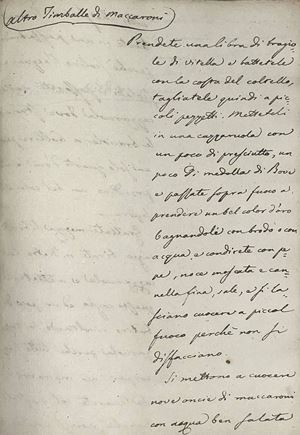 altro Timballe di Maccaroni
Prendete una libra di bragio
le di vitella e battetele
con la costa del coltello,
tagliatele quindi a pic
coli pezzetti. Metteteli
in una cazzaruola con
un poco di presciutto, un
poco di midolla di Bove
e passate sopra fuoco a
prendere un bel color d'oro
bagnandole con brodo o con
acqua, e condirete con pe
pe, noce moscata e can
nella fina, sale, e si la
sciano cuocere a piccol
fuoco perchè non si
disfacciano.
Si mettono a cuocere
nove oncie di maccaroni
con acqua ben salata